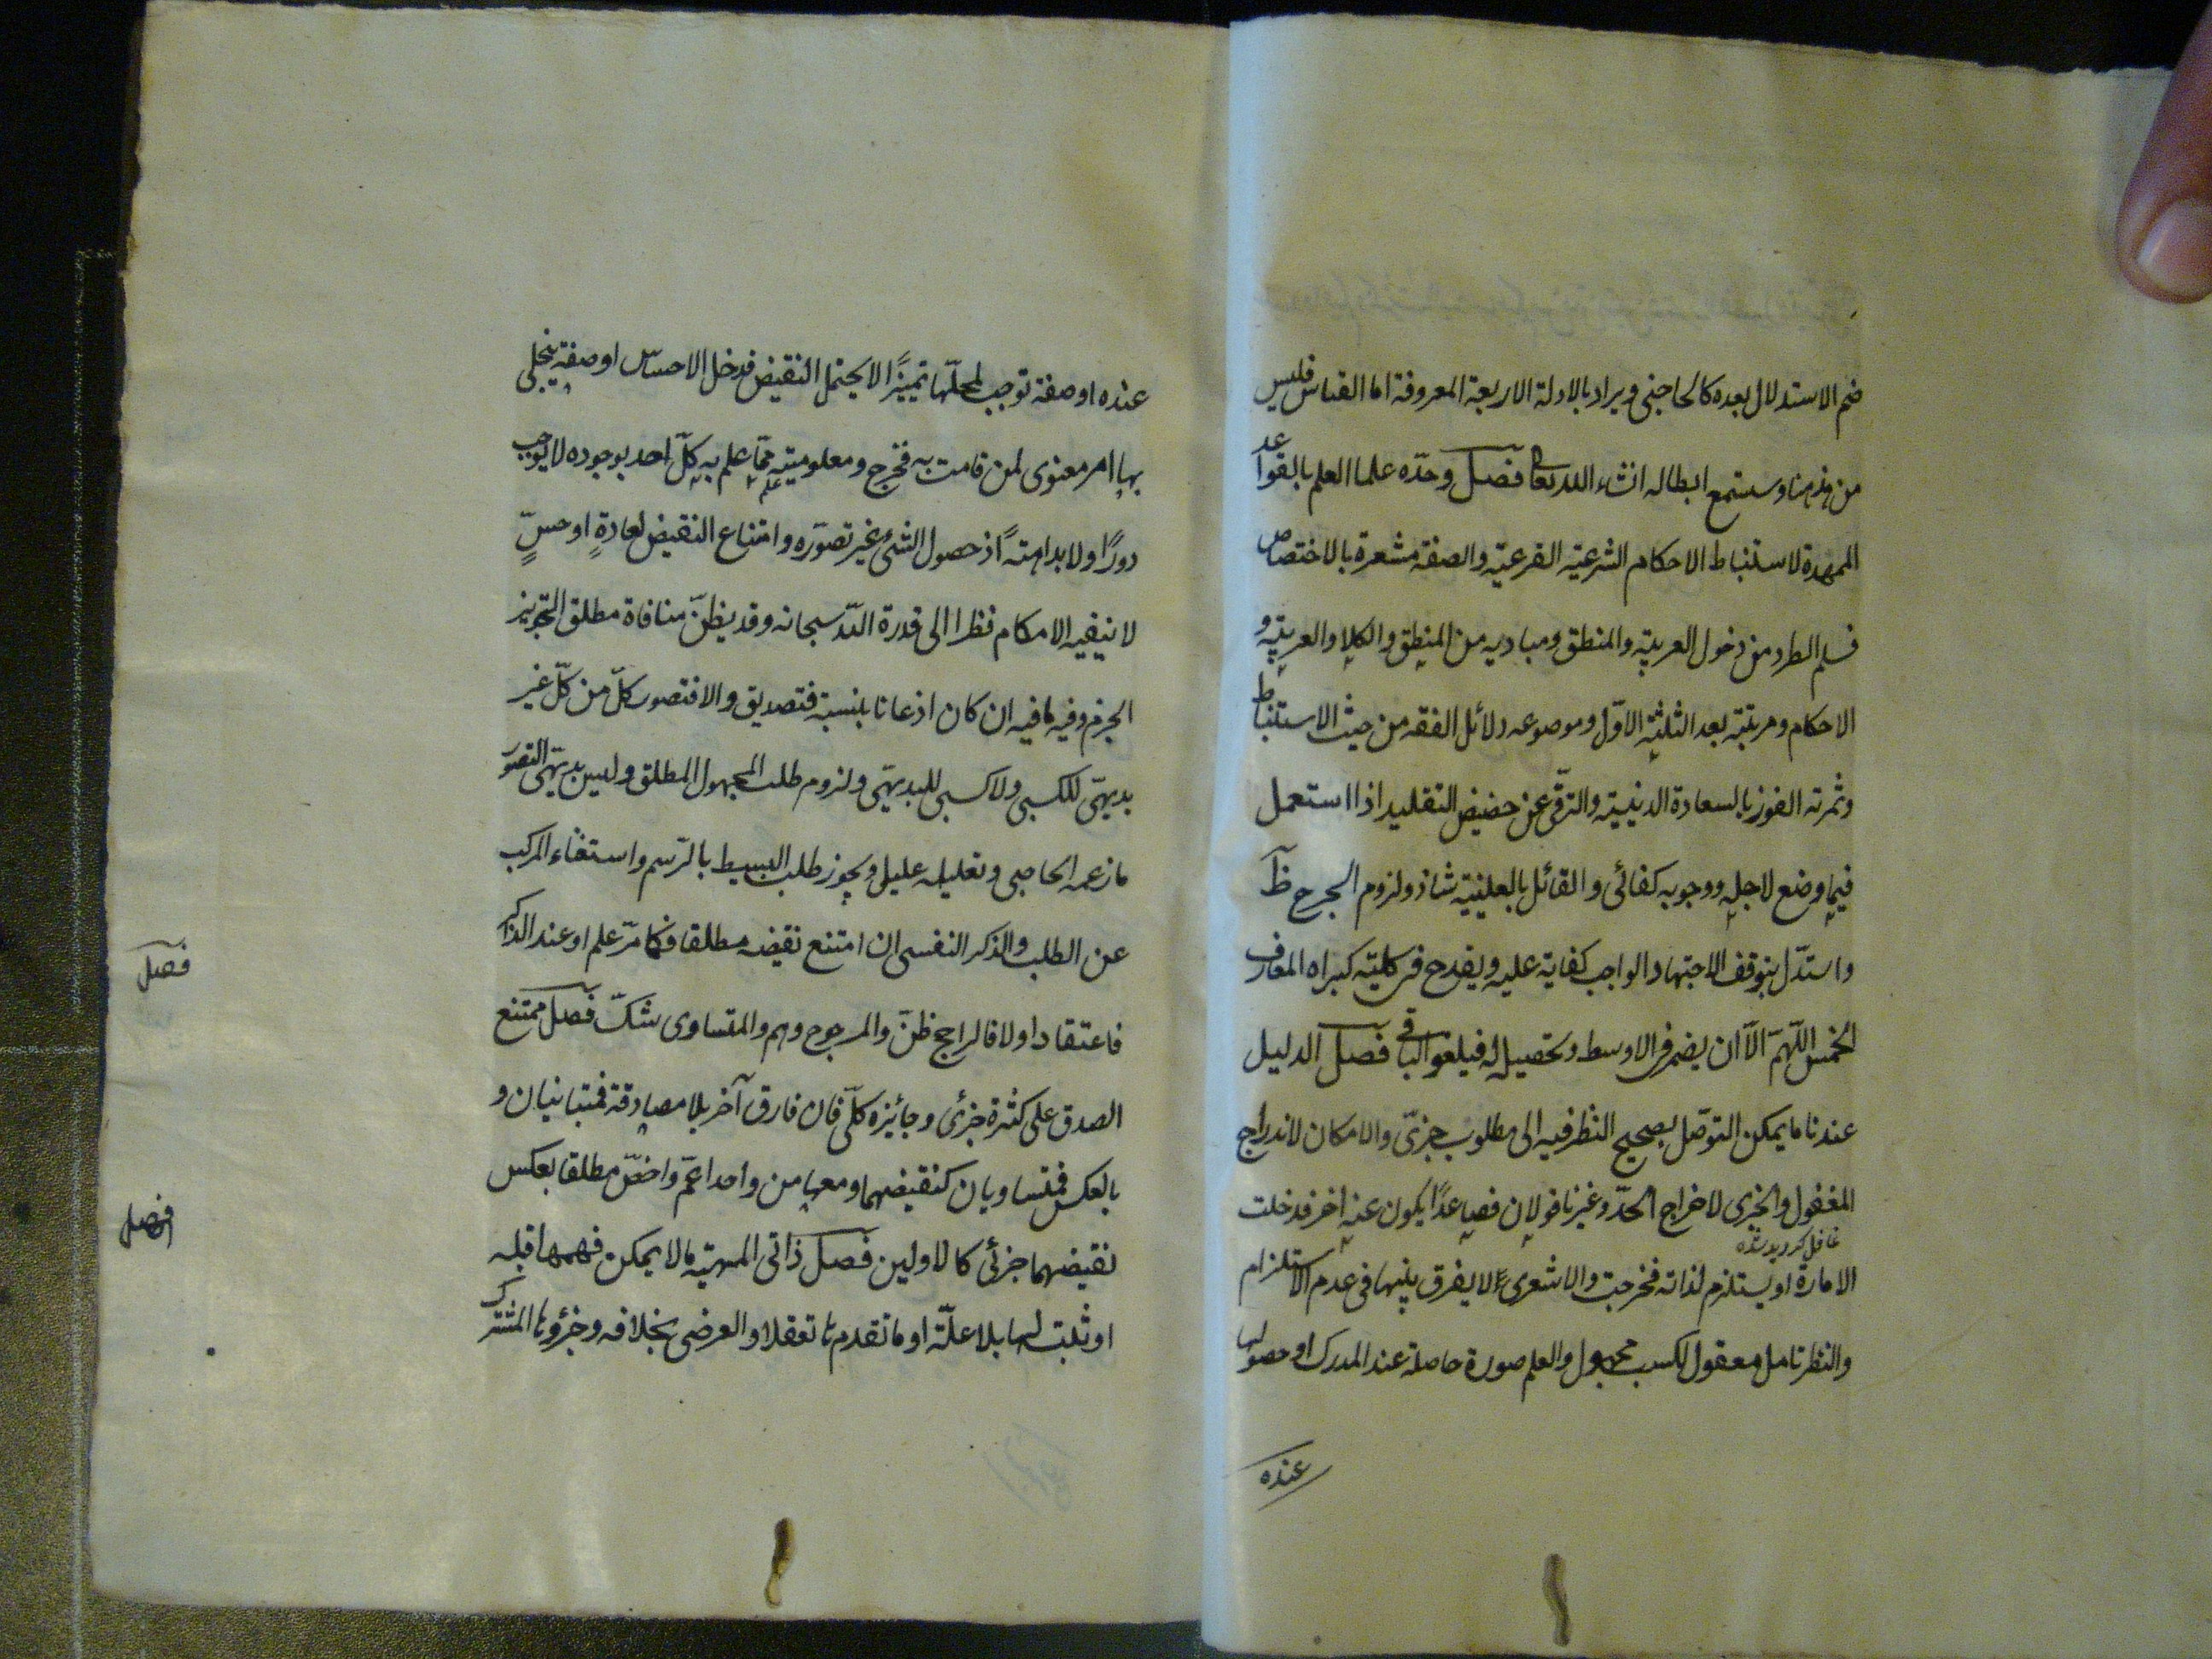 ضم الاستدلال بعده كالحاجبى ويراد بالادلة الاربعة المعروفة اما القياس فليس
من مذهبنا وستسمع ابطاله انشاء الله تعالى فصل وحده علما العلم بالقواعد
الممهدة لاستنباط الاحكام الشرعية الفرعية والصفة مشعرة بالاختصاص
فسلم الطرد من دخول العربية والمنطق ومباديه من المنطق والكلام والعربية و
الاحكام ومرتبته بعد الثلثة الاوّل وموضوعه دلائل الفقه من حيث الاستنباط
وثمرته الفوز بالسعادة الدينية والترقّى عن حضيض التقليد اذا استعمل
فيما وضع لاجله ووجوبه كفائى والقائل بالعينية شاذ ولزوم الحرج ظ
واستدّل بتوقف الاجتهاد الواجب كفاية عليه ويقدح فى كلية كبراه المعارف
الخمس اللّهمّ الّا ان يضم فى الاوسط وتحصيل له فيلغو الباقى فصل الدليل
عندنا ما يمكن التوصّل بصحيح النظر فيه الى مطلوب خبرىّ والامكان لاندراج
المغفول والخبرى لاخراج الحدّ وغيرنا قولان فصاعدًا يكون عنه اخر فدخلت
غافل كرديد شده
الامارة او يستلزم لذاته فخرجت والاشعرى لا يفرق بينها فى عدم الاستلزام
والنظر تامل معقول لكسب مجهول والعلم صورة حاصلة عند المدرك او حصولها
عنده
عنده او صفة توجب لمحلّها تمييزًا لا يحتمل النقيض فدخل الاحساس او صفة ينجلى
بها امر معنوى لمن قامت به فخرج ومعلوميته ممّا علم به كلّ احد بوجوده لا يوجب
علم
دورًا ولا بداهتهً اذ حصول الشئ غير تصوّره وامتناع النقيض لعادةٍ او حسٍّ
لا ينفيه الامكام نظرا الى قدرة اللّه سبحانه وقد يظنّ منافاة مطلق التجويز
الجزم وفيه ما فيه ان كان اذعانا بنسبة فتصديق والا فتصور كلّ من كلّ غير
بديهىّ للكسبى ولا كسبى للبديهىّ ولزوم طلب المجهول المطلق وليس بديهى التصوّر
ما زعمه الحاجبى وتعليله عليل ويجوز طلب البسيط بالرّسم واستغناء المركب
عن الطلب والذكر النفسى ان امتنع نقيضه مطلقا فكما مرّ علم او عند الذاكر
فاعتقاد اولا فالراجح ظنّ والمرجوح وهم والمتساوى شكّ فصل ممتنع
فصل
الصدق على كثرة جزئى وجائزه كلّى فان فارق آخر بلا مصادقة فمتباينان و
بالعكس فمتساويان كنقيضهما ومعها من واحد اعمّ واخصّ مطلقا بعكس
نقيضهما جزئى كالاولين فصل ذاتى المهيّة ما لا يمكن فهمها قبله
فصل
او ثبت لها بلا علّة او ما تقدم ها تعقلا والعرضى بخلافه وجزؤها المشترك